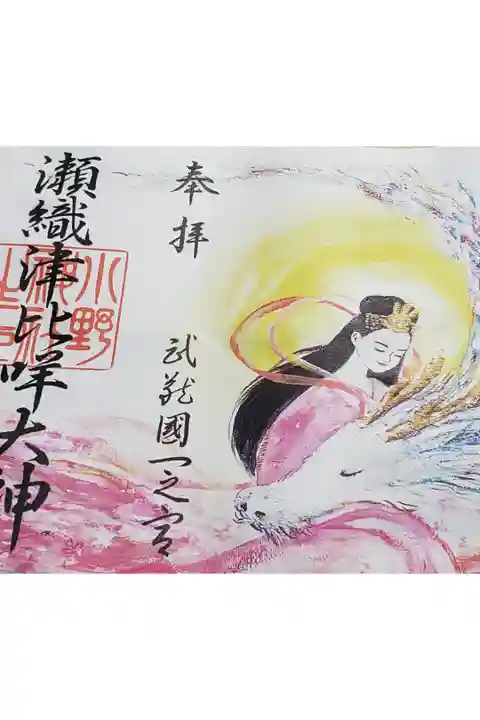 奉拝
武蔵國一之宮
瀬織津比咩大神
小野
神社